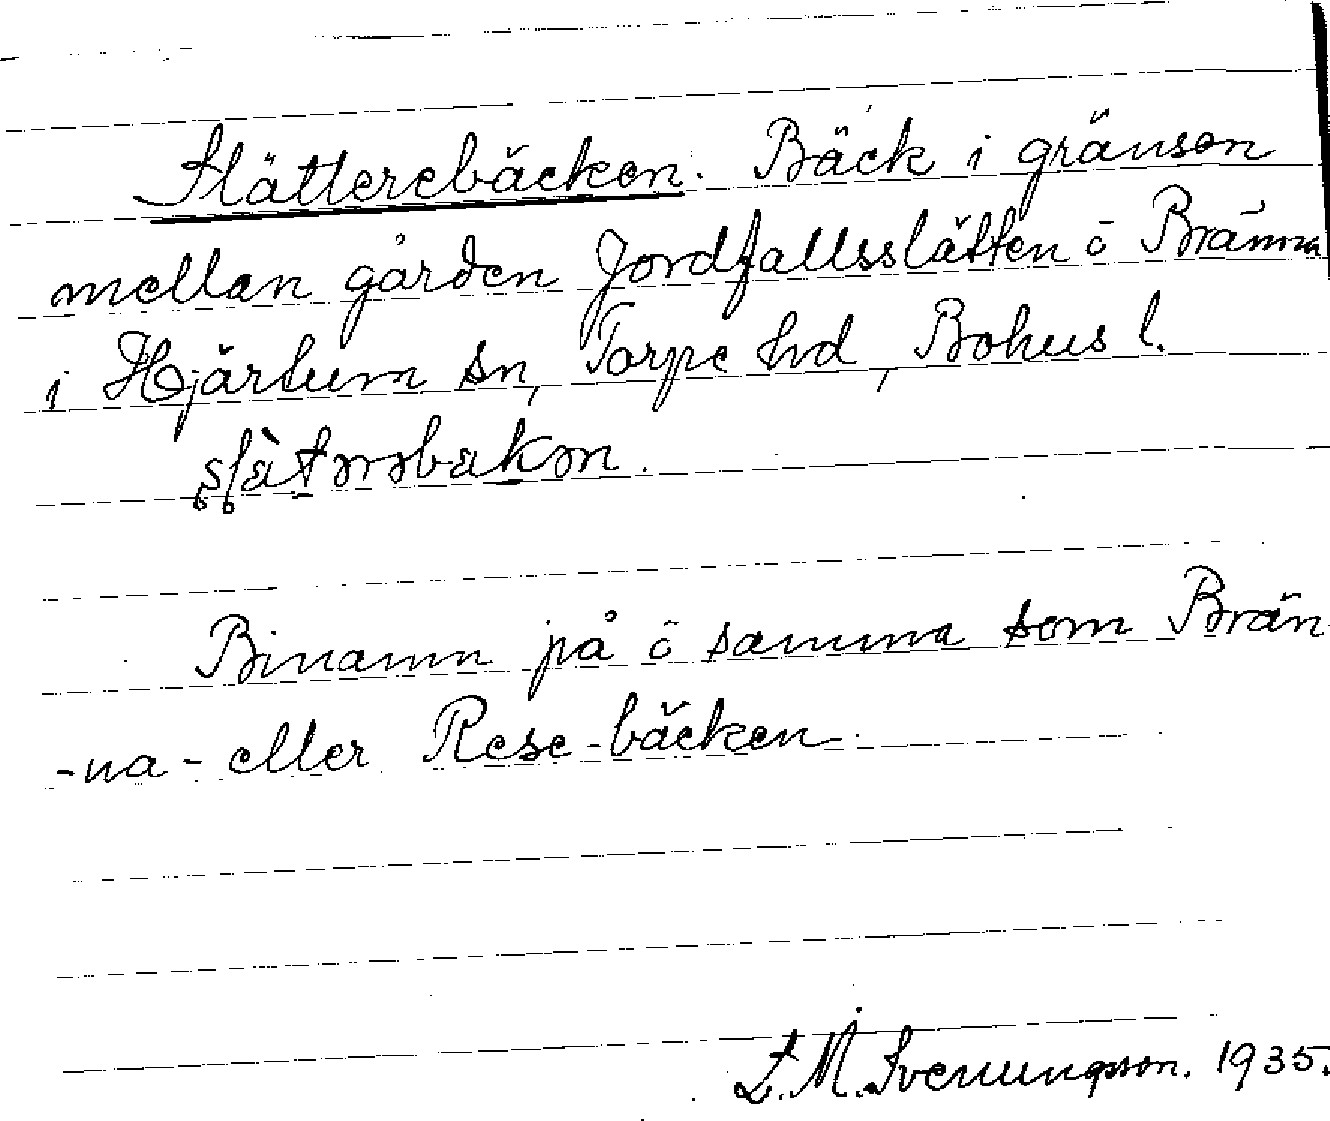 Slätterebäcken. Bäck i gränsen
mellan gården Jordfallsslätten ö Bränna
i Hjärtum sn, Torpe hd, Bohus l.
Binamn på ö samma som Brän
-na- eller Rese-bäcken.
L.M. Svenungsson. 1935.